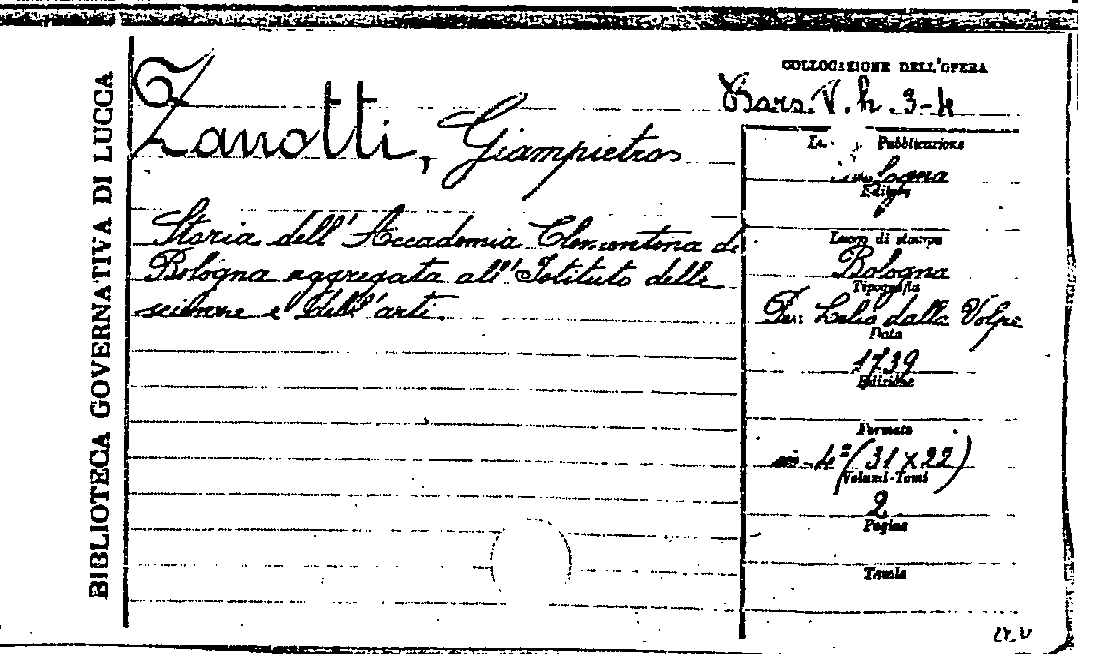 BIBLIOTECA GOVERNATIVA DI LUCCA
Zanotti, Giampietro
Storia dell'Accademia Clementina di
Bologna aggregata all'Istituto delle
scienze e dell'arti.
COLLOCAZIONE DELL'OPERA
Bars. V. h. 3-4
Pubblicazione
Bologna
Editore
Luogo di stampa
Bologna
Tipografia
Lelio dalla Volpe
Data
1739
Edizione
Formato
in-4º (31 x 22)
Volumi-Tomi
2
Pagine
Tavole